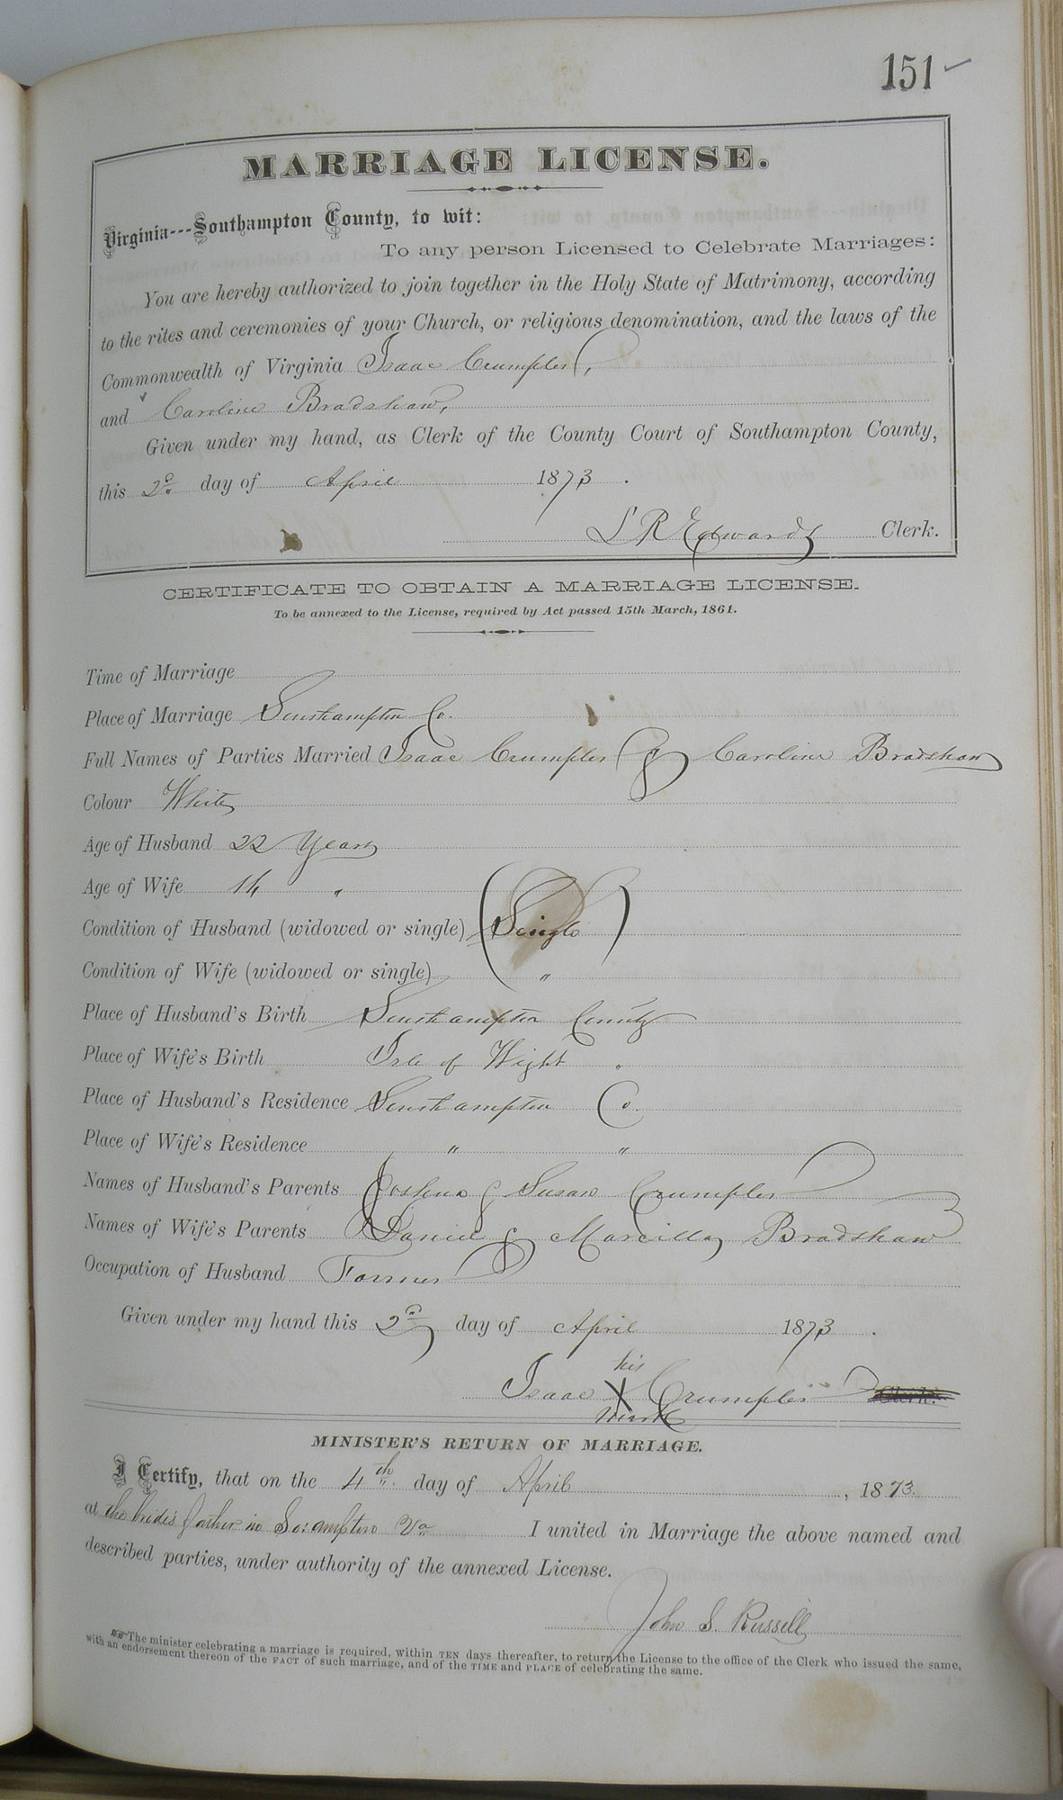 151
MARRIAGE LICENSE.
Virginia---Southampton County, to wit:
To any person Licensed to Celebrate Marriages:
You are hereby authorized to join together in the Holy State of Matrimony, according
to the rites and ceremonies of your Church, or religious denomination, and the laws of the
Commonwealth of Virginia Isaac Crumpler,
and Caroline Bradshaw,
Given under my hand, as Clerk of the County Court of Southampton County,
this 2d day of April 1873.
L R Edwards Clerk.
CERTIFICATE TO OBTAIN A MARRIAGE LICENSE.
To be annexed to the License, required by Act passed 15th March, 1861.
Time of Marriage
Place of Marriage Southampton Co.
Full Names of Parties Married Isaac Crumpler & Caroline Bradshaw
Colour White
Age of Husband 22 Years
Age of Wife "
Condition of Husband (widowed or single) Single
Condition of Wife (widowed or single) "
Place of Husband's Birth Southampton County
Place of Wife's Birth Isle of Wight "
Place of Husband's Residence Southampton Co.
Place of Wife's Residence " "
Names of Husband's Parents Joshua & Susan Crumpler
Names of Wife's Parents Daniel & Marcilla Bradshaw
Occupation of Husband Farmer
Given under my hand this 2d day of April 1873.
his
Isaac X Crumpler Clerk.
mark
MINISTER'S RETURN OF MARRIAGE.
I Certify, that on the 4th day of April, 1873.
at the bride's father in So:ampton Va I united in Marriage the above named and
described parties, under authority of the annexed License.
John S. Russell
The minister celebrating a marriage is required, within TEN days thereafter, to return the License to the office of the Clerk who issued the same,
with an endorsement thereon of the FACT of such marriage, and of the TIME and PLACE of celebrating the same.